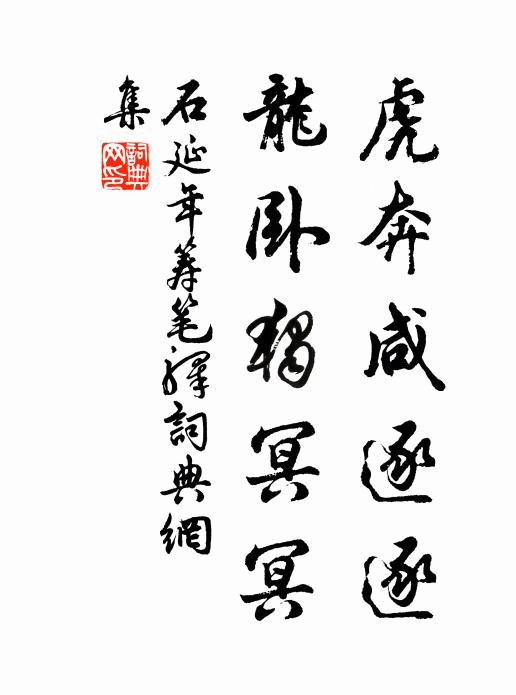 虎奔咸逐逐
龍卧獨冥冥
石延年籌笔驛詞典網
集
詞典
网印